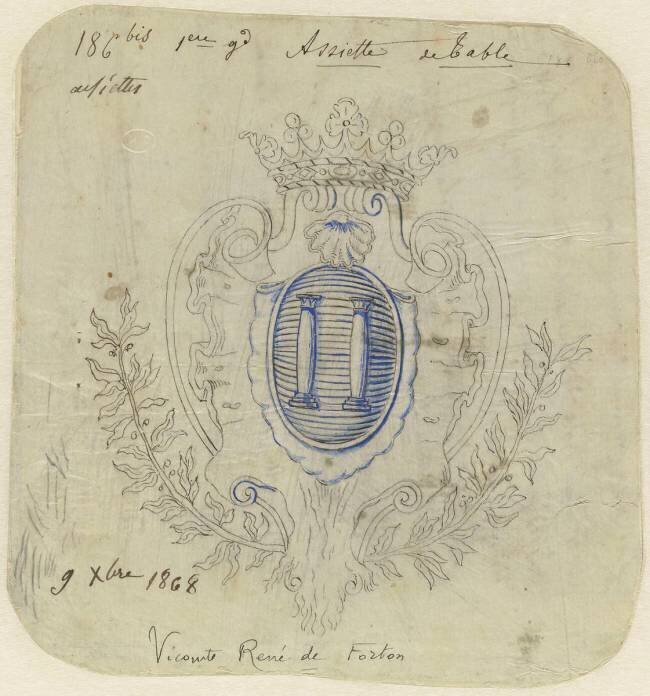 186 bis 1ere gd Assiette de Table
assiettes
9 Xbre 1868
Vicomte René de Forton